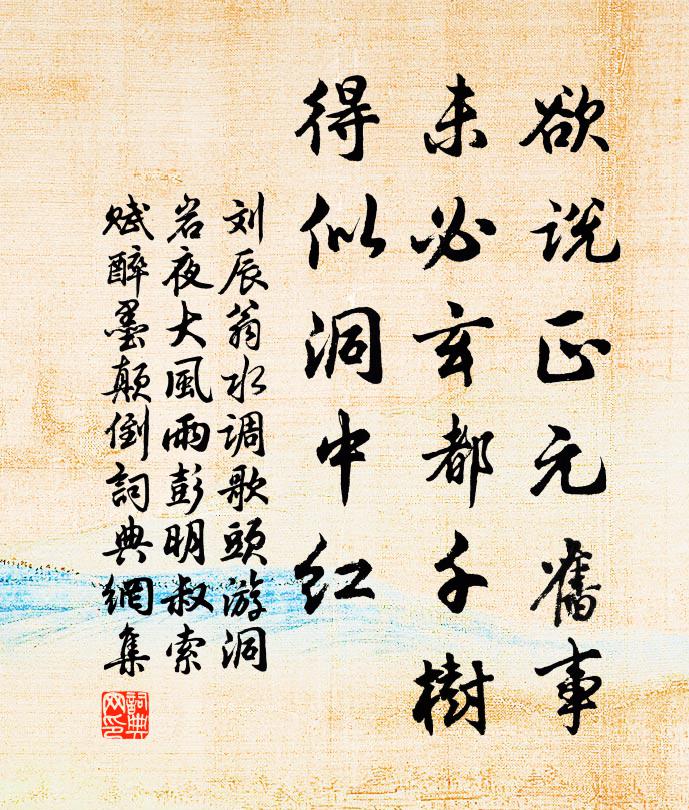 欲说正元舊事
未必玄都千樹
得似洞中红
刘辰翁水调歌頭游洞
岩夜大風雨彭明叔索
赋醉墨颠倒詞典網集
詞典网印